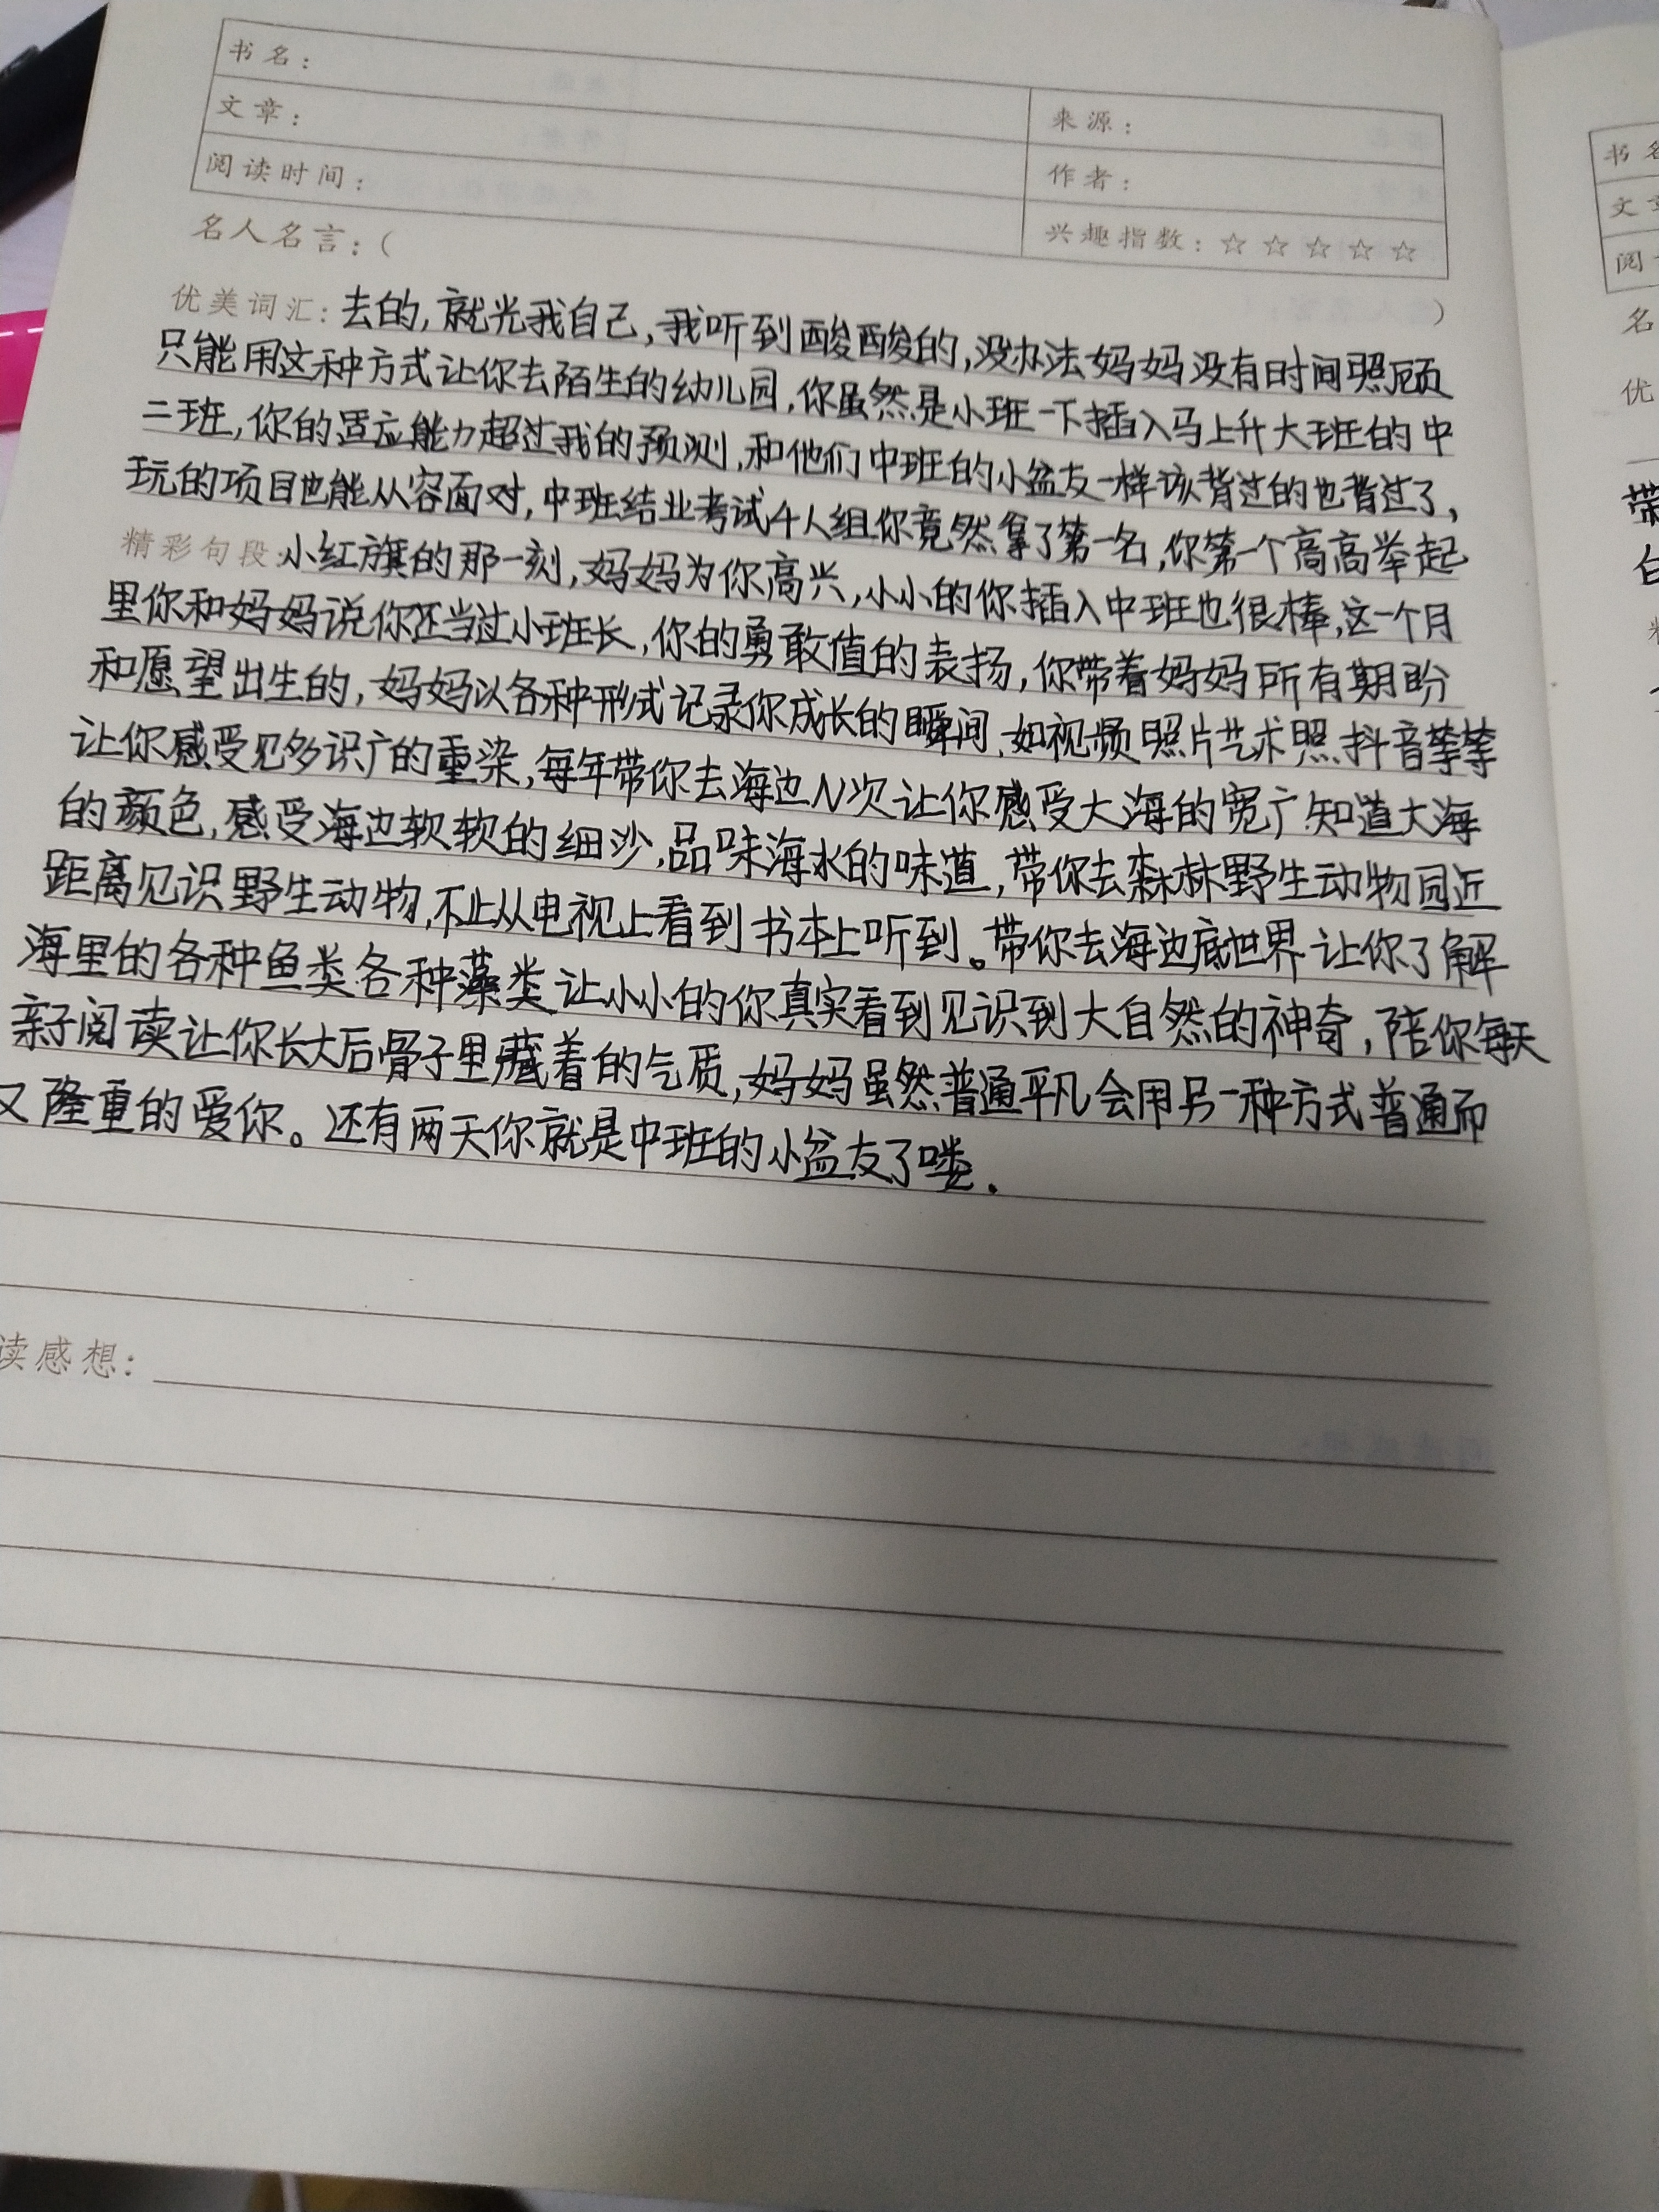 书名：
文章：
来源：
阅读时间：
作者：
名人名言：（
兴趣指数：☆☆☆☆☆
）
优美词汇：去的，就光我自己，我听到酸酸的，没办法妈妈没有时间照顾
只能用这种方式让你去陌生的幼儿园，你虽然是小班一下插入马上升大班的中
二班，你的适应能力超过我的预测，和他们中班的小盆友一样该背过的也背过了，
玩的项目也能从容面对，中班结业考试4人组你竟然拿了第一名，你第一个高高举起
精彩句段：小红旗的那一刻，妈妈为你高兴，小小的你插入中班也很棒，这一个月
里你和妈妈说你还当过小班长，你的勇敢值的表扬，你带着妈妈所有期盼
和愿望出生的，妈妈以各种形式记录你成长的瞬间，如视频照片艺术照．抖音等等
让你感受见多识广的重染，每年带你去海边N次让你感受大海的宽广．知道大海
的颜色，感受海边软软的细沙，品味海水的味道，带你去森林野生动物园近
距离见识野生动物，不止从电视上看到书本上听到。带你去海边底世界让你了解
海里的各种鱼类各种藻类让小小的你真实看到见识到大自然的神奇，陪你每天
亲子阅读让你长大后骨子里藏着的气质，妈妈虽然普通平凡会用另一种方式普通而
又隆重的爱你。还有两天你就是中班的小盆友了喽．
读感想：
书名
文章
阅
名
优
带
白